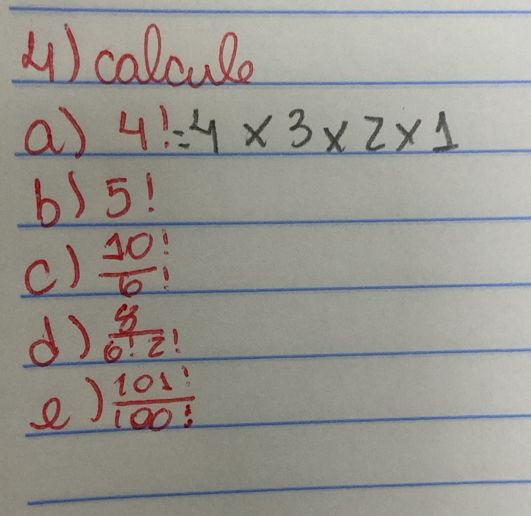 4) calcule
a) 4! = 4 x 3 x 2 x 1
b) 5!
c) 10!/6!
d) 8/6! 2!
e) 101!/100!